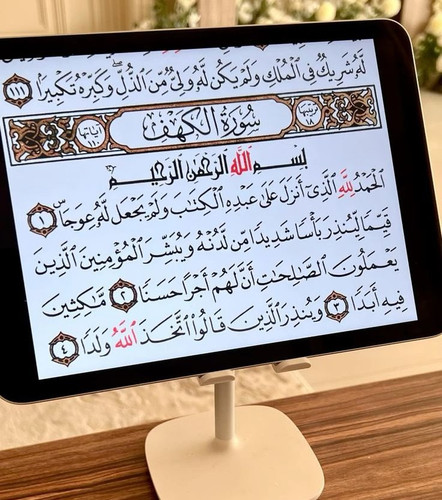 لَّهُ شَرِيكٌ فِي الْمُلْكِ وَلَمْ يَكُن لَّهُ وَلِيٌّ مِّنَ الذُّلِّ ۖ وَكَبِّرْهُ تَكْبِيرًا ١١١
سُورَةُ الْكَهْفِ
بِسْمِ اللَّهِ الرَّحْمَٰنِ الرَّحِيمِ
الْحَمْدُ لِلَّهِ الَّذِي أَنزَلَ عَلَىٰ عَبْدِهِ الْكِتَابَ وَلَمْ يَجْعَل لَّهُ عِوَجًا ۜ ١
قَيِّمًا لِّيُنذِرَ بَأْسًا شَدِيدًا مِّن لَّدُنْهُ وَيُبَشِّرَ الْمُؤْمِنِينَ الَّذِينَ
يَعْمَلُونَ الصَّالِحَاتِ أَنَّ لَهُمْ أَجْرًا حَسَنًا ٢ مَّاكِثِينَ
فِيهِ أَبَدًا ٣ وَيُنذِرَ الَّذِينَ قَالُوا اتَّخَذَ اللَّهُ وَلَدًا ٤